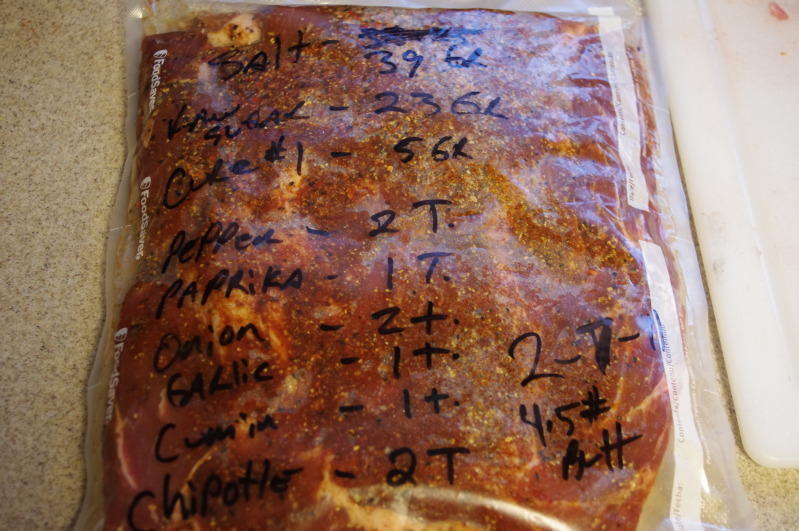 Salt - 39 GR
RAW SUGAR - 23 GR
Cure #1 - 5 GR
PEPPER - 2 T.
PAPRIKA - 1 T.
Onion - 2 t.
GARLIC - 1 t.
Cumin - 1 t.
Chipotle - 2 T
4.5# Butt
FoodSaver
FoodSaver
FoodSaver